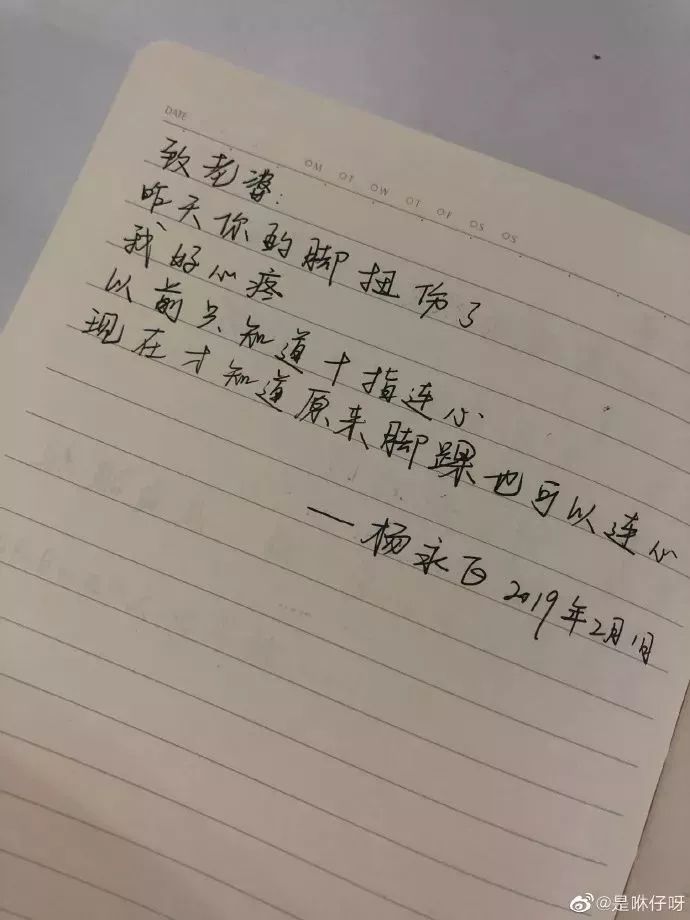 DATE
MO TO WO TO FO SO SO
致老婆:
昨天你的脚扭伤了
我好心疼
以前只知道十指连心
现在才知道原来脚踝也可以连心
——杨永飞 2019年2月1日
@是咻仔呀